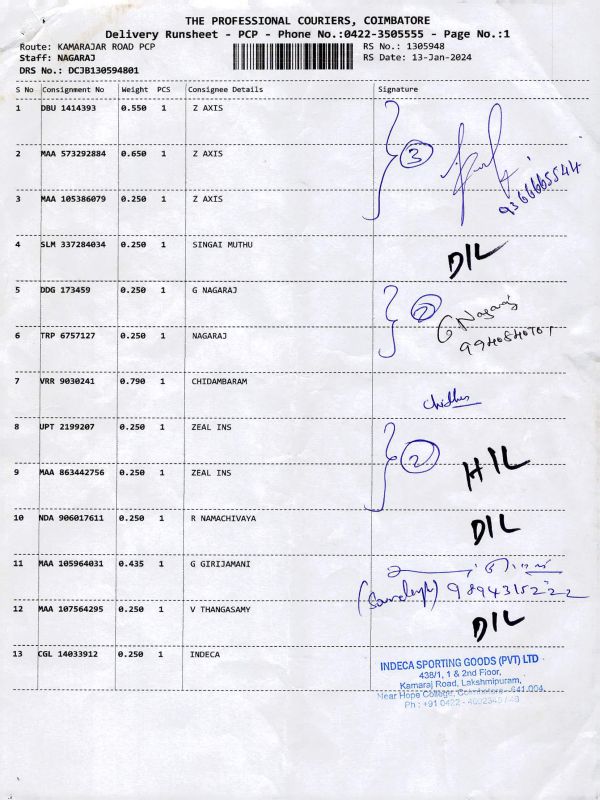 THE PROFESSIONAL COURIERS, COIMBATORE
Delivery Runsheet - PCP - Phone No.:0422-3505555 - Page No.:1
Route: KAMARAJAR ROAD PCP RS No.: 1305948
Staff: NAGARAJ RS Date: 13-Jan-2024
DRS No.: DCJB130594801
S No Consignment No Weight PCS Consignee Details Signature
1 DBU 1414393 0.550 1 Z AXIS
3
2 MAA 573292884 0.650 1 Z AXIS
3 MAA 105386079 0.250 1 Z AXIS
9366665544
4 SLM 337284034 0.250 1 SINGAI MUTHU D/L
5 DDG 173459 0.250 1 G NAGARAJ 2 G Nagaraj
6 TRP 6757127 0.250 1 NAGARAJ
7 VRR 9030241 0.790 1 CHIDAMBARAM
8 UPT 2199207 0.250 1 ZEAL INS
2 H/L
9 MAA 863442756 0.250 1 ZEAL INS
10 NDA 906017611 0.250 1 R NAMACHIVAYA D/L
11 MAA 105964031 0.435 1 G GIRIJAMANI
12 MAA 107564295 0.250 1 V THANGASAMY D/L
13 CGL 14033912 0.250 1 INDECA
INDECA SPORTING GOODS (PVT) LTD
438/1, 1 & 2nd Floor,
Kamaraj Road, Lakshmipuram,
Near Hope College, Coimbatore - 641 004.
Ph : +91 0422 -